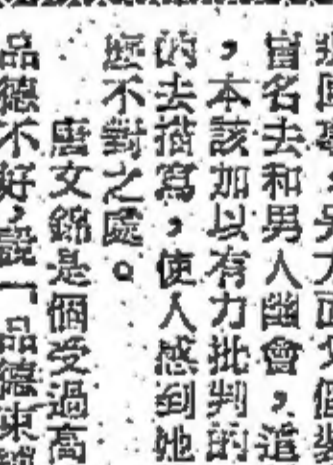 冒名去和男人幽會，這
，本該加以有力批判的
的去描寫，使人感到她
麽不對之處。
唐女錦是個受過高
品德不好，說「品德東